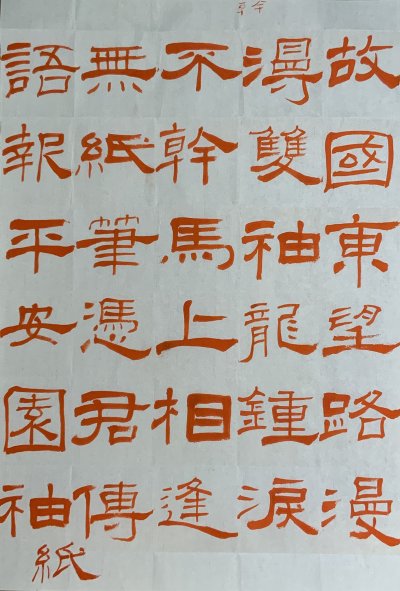 故國東望路漫
漫雙袖龍鍾淚
不幹馬上相逢
無紙筆憑君傳
語報平安園袖
紙